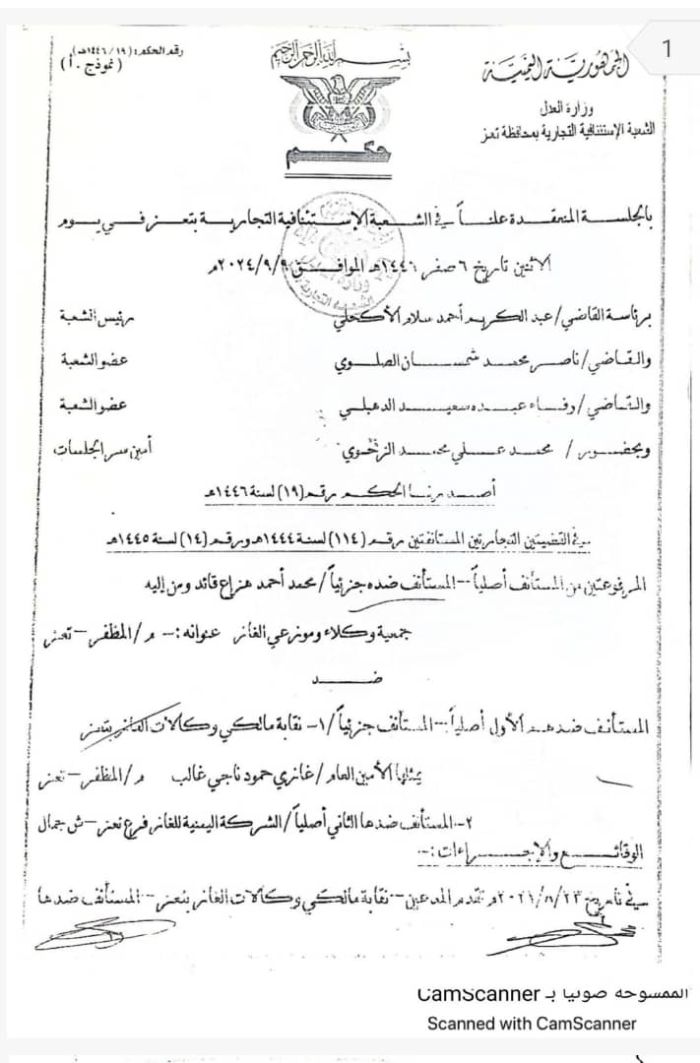 1
الجمهورية اليمنية
وزارة العدل
الشعبة الإستئنافية التجارية بمحافظة تعز
بسم الله الرحمن الرحيم
حكم
رقم الحكم: (١٩/١٤٤٦هـ)
(نموذج .أ)
بالجلسة المنعقدة علناً في الشعبة الإستئنافية التجارية بتعز في يوم
الاثنين تاريخ ٦ صفر ١٤٤٦هـ الموافق ٢٠٢٤/٩/٩م
برئاسة القاضي/عبد الكريم أحمد سلام الأكحلي رئيس الشعبة
والقاضي/ناصر محمد شمسان الصلوي عضو الشعبة
والقاضي/رفاء عبده سعيد الدهبلي عضو الشعبة
وبحضور / محمد علي محمد أمين سر الجلسات
أصدرنا الحكم رقم (١٩) لسنة ١٤٤٦هـ
في القضيتين التجاريتين المستانفتين رقم (١١٤) لسنة ١٤٤٤هـ ورقم (١٤) لسنة ١٤٤٥هـ
المرفوعتين من المستانف أصلياً --المستأنف ضده جزئياً/محمد أحمد هزاع قائد ومن إليه
جمعية وكلاء وموزعي الغاز عنوانه:- م/المظفر – تعز
ضد
المستأنف ضدهم الأول أصلياً--المستأنف جزئياً/١- نقابة مالكي وكالات الغاز بتعز
يمثلها الأمين العام/غازي حمود ناجي غالب م/المظفر – تعز
٢-المستأنف ضدها الثاني أصلياً/الشركة اليمنية للغاز فرع تعز – ش جمال
الوقائع والإجراءات:-
في تاريخ ٢٠٢١/٨/٢٣م تقدم المدعين -نقابة مالكي وكالات الغاز بتعز - المستأنف ضدها
الممسوحة ضوئيا بـ CamScanner
Scanned with CamScanner